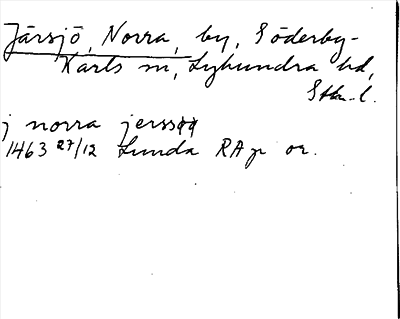 Järsjö, Norra, by, Söderby-
Karls sn, Lyhundra hd,
Sthm. l.
j norra jerssøø
1463 27/12 Lunda RAp or.